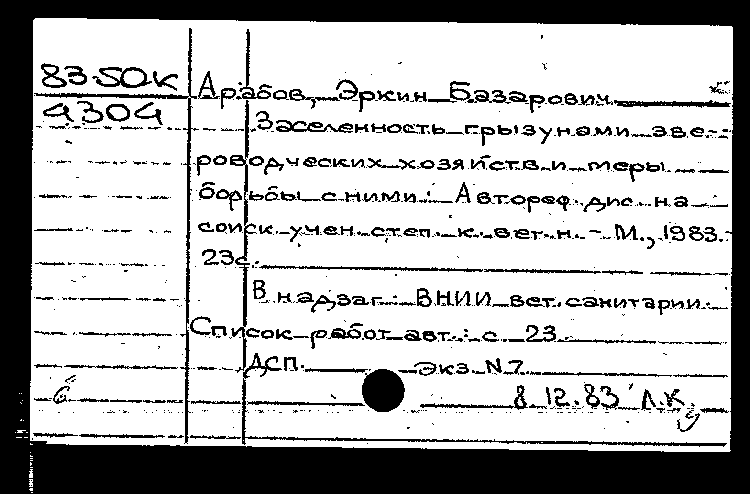 83-50К
4304
Арабов, Эркин Базарович
Заселенность грызунами зве-
роводческих хозяйств и меры
борьбы с ними: Автореф. дис. на
соиск. учен. степ. к. вет. н. - М., 1983. -
23с.
В надзаг.: ВНИИ вет. санитарии.
Список работ авт.: с. 23.
ДСП. Экз. N 7
8.12.83 Л.К.